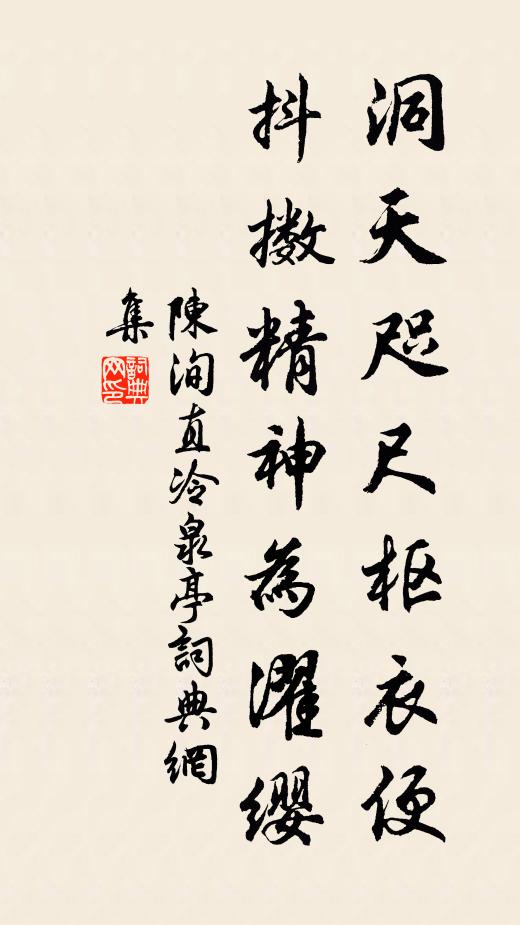 洞天咫尺枢衣便
抖擞精神為濯缨
陳洵直冷泉亭詞典網
集
詞典
网印